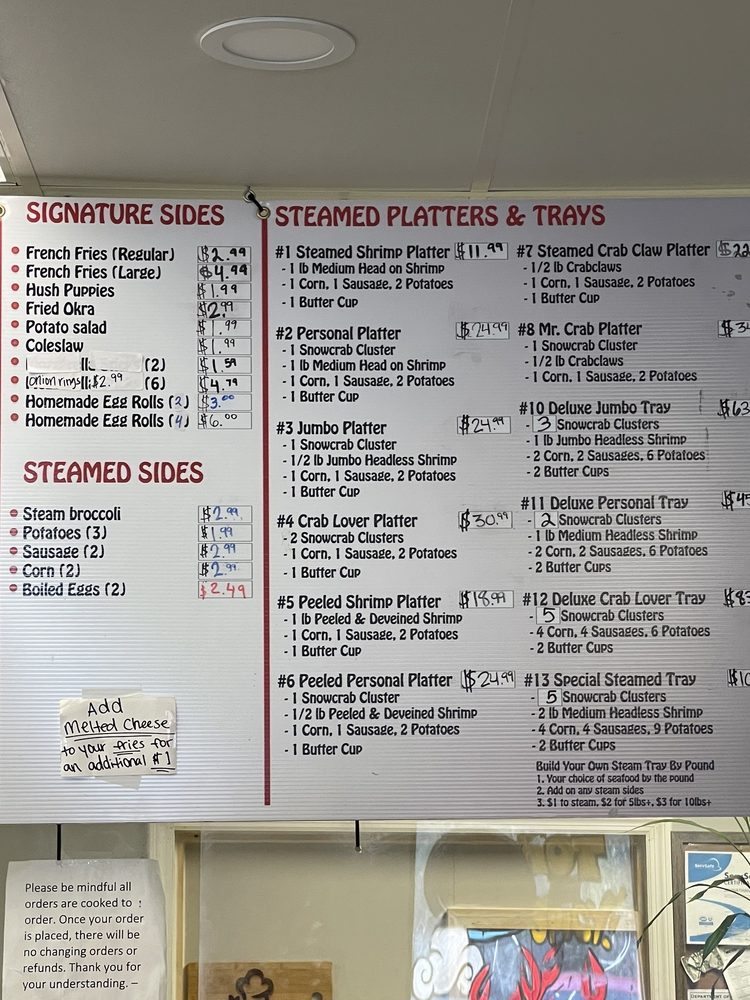 SIGNATURE SIDES
French Fries (Regular) $2.99
French Fries (Large) $4.99
Hush Puppies $1.99
Fried Okra $2.99
Potato salad $1.99
Coleslaw $1.99
(2) $1.59
onion rings $2.99 (6) $4.79
Homemade Egg Rolls (2) $3.00
Homemade Egg Rolls (4) $6.00
STEAMED SIDES
Steam broccoli $2.99
Potatoes (3) $1.99
Sausage (2) $2.99
Corn (2) $2.99
Boiled Eggs (2) $2.49
Add
Melted Cheese
to your fries for
an additional $1
STEAMED PLATTERS & TRAYS
#1 Steamed Shrimp Platter $11.99
- 1 lb Medium Head on Shrimp
- 1 Corn, 1 Sausage, 2 Potatoes
- 1 Butter Cup
#2 Personal Platter $24.99
- 1 Snowcrab Cluster
- 1 lb Medium Head on Shrimp
- 1 Corn, 1 Sausage, 2 Potatoes
- 1 Butter Cup
#3 Jumbo Platter $24.99
- 1 Snowcrab Cluster
- 1/2 lb Jumbo Headless Shrimp
- 1 Corn, 1 Sausage, 2 Potatoes
- 1 Butter Cup
#4 Crab Lover Platter $30.99
- 2 Snowcrab Clusters
- 1 Corn, 1 Sausage, 2 Potatoes
- 1 Butter Cup
#5 Peeled Shrimp Platter $18.99
- 1 lb Peeled & Deveined Shrimp
- 1 Corn, 1 Sausage, 2 Potatoes
- 1 Butter Cup
#6 Peeled Personal Platter $24.99
- 1 Snowcrab Cluster
- 1/2 lb Peeled & Deveined Shrimp
- 1 Corn, 1 Sausage, 2 Potatoes
- 1 Butter Cup
#7 Steamed Crab Claw Platter $22
- 1/2 lb Crabclaws
- 1 Corn, 1 Sausage, 2 Potatoes
- 1 Butter Cup
#8 Mr. Crab Platter $3
- 1 Snowcrab Cluster
- 1/2 lb Crabclaws
- 1 Corn, 1 Sausage, 2 Potatoes
#10 Deluxe Jumbo Tray $63
- 3 Snowcrab Clusters
- 1 lb Jumbo Headless Shrimp
- 2 Corn, 2 Sausages, 6 Potatoes
- 2 Butter Cups
#11 Deluxe Personal Tray $45
- 2 Snowcrab Clusters
- 1 lb Medium Headless Shrimp
- 2 Corn, 2 Sausages, 6 Potatoes
- 2 Butter Cups
#12 Deluxe Crab Lover Tray $83
- 5 Snowcrab Clusters
- 4 Corn, 4 Sausages, 6 Potatoes
- 2 Butter Cups
#13 Special Steamed Tray $10
- 5 Snowcrab Clusters
- 2 lb Medium Headless Shrimp
- 4 Corn, 4 Sausages, 9 Potatoes
- 2 Butter Cups
Build Your Own Steam Tray By Pound
1. Your choice of seafood by the pound
2. Add on any steam sides
3. $1 to steam, $2 for 5lbs+, $3 for 10lbs+
Please be mindful all
orders are cooked to
order. Once your order
is placed, there will be
no changing orders or
refunds. Thank you for
your understanding. –
HOT
ServSafe